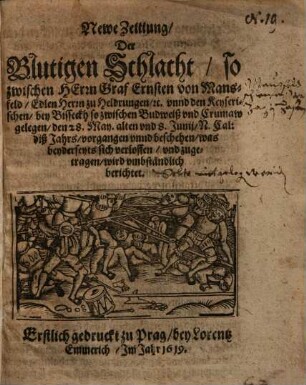 N. 10.
Newe Zeittung/
Der
Blutigen Schlacht / so
zwischen HErrn Graf Ernsten von Mans-
feld / Edlen Herrn zu Heldrungen/ ꝛc. vnnd den Keyseri-
schen / bey Bisseckh so zwischen Budweiß vnd Crumaw
gelegen / den 28. May. alten vnd 8. Junij / N. Cal:
diß Jahrs / vorgangen vnnd beschehen / was
beyderseyts sich verloffen / vnd zuge-
tragen / wird vmbständlich
berichtet.
Erstlich gedruckt zu Prag / bey Lorentz
Emmerich / Jm Jahr 1619.